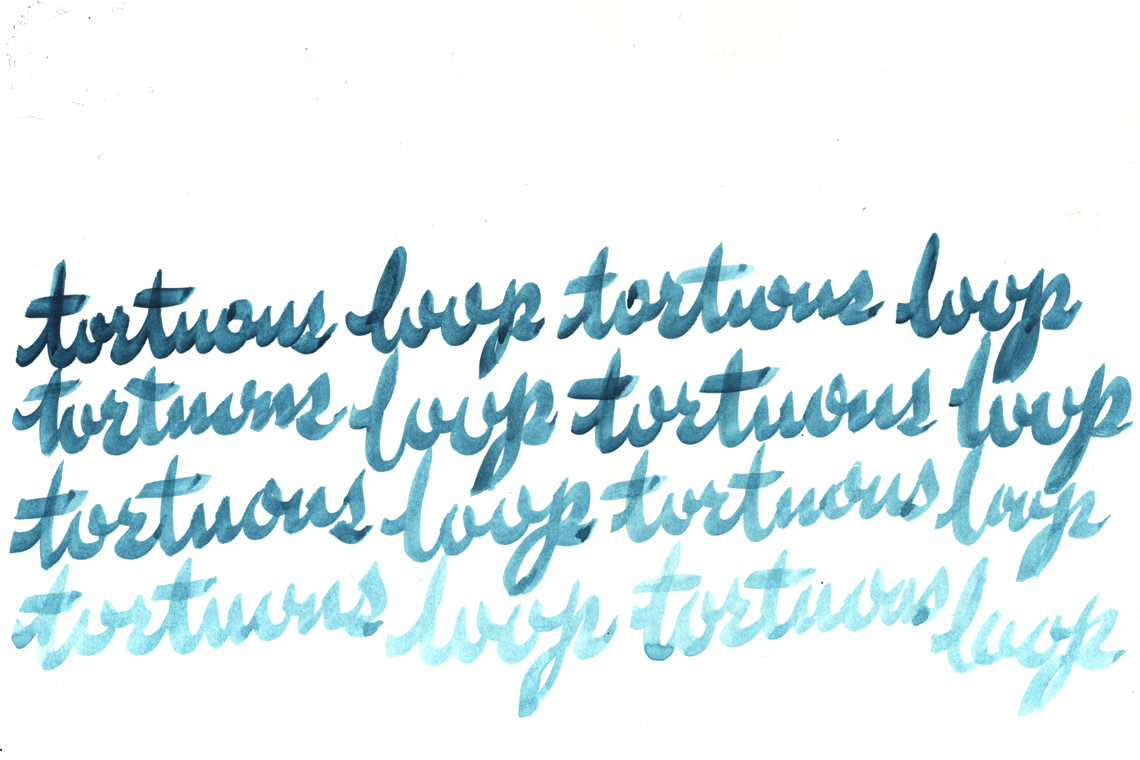 tortuous loop tortuous loop
tortuous loop tortuous loop
tortuous loop tortuous loop
tortuous loop tortuous loop